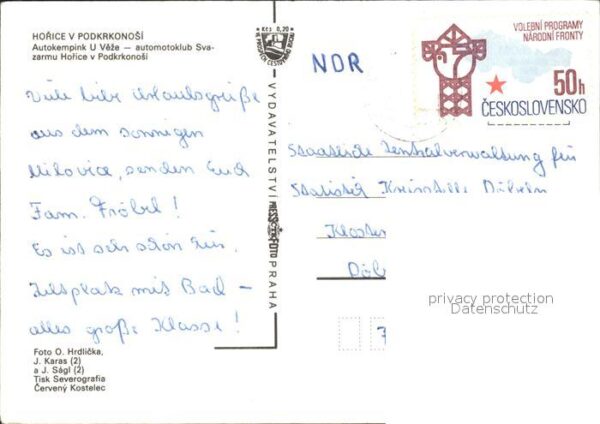 HOŘICE V PODKRKONOŠÍ
Autokempink U Věže — automotoklub Sva-
zarmu Hořice v Podkrkonoší
Viele liebe Urlaubsgrüße
aus dem sonnigen
Milovice, senden Euch
Fam. Fröbel!
Es ist sehr schön hier.
Zeltplatz mit Bad –
alles große Klasse!
Foto O. Hrdlička,
J. Karas (2)
a J. Ságl (2)
Tisk Severografia
Červený Kostelec
Kčs 0,20
VYDAVATELSTVÍ PRESSFOTO PRAHA
NDR
VOLEBNÍ PROGRAMY
NÁRODNÍ FRONTY
50h
ČESKOSLOVENSKO
Staatliche Zentralverwaltung für
Statistik Kreisstelle Döbeln
Kloster
Döb
7
privacy protection
Datenschutz